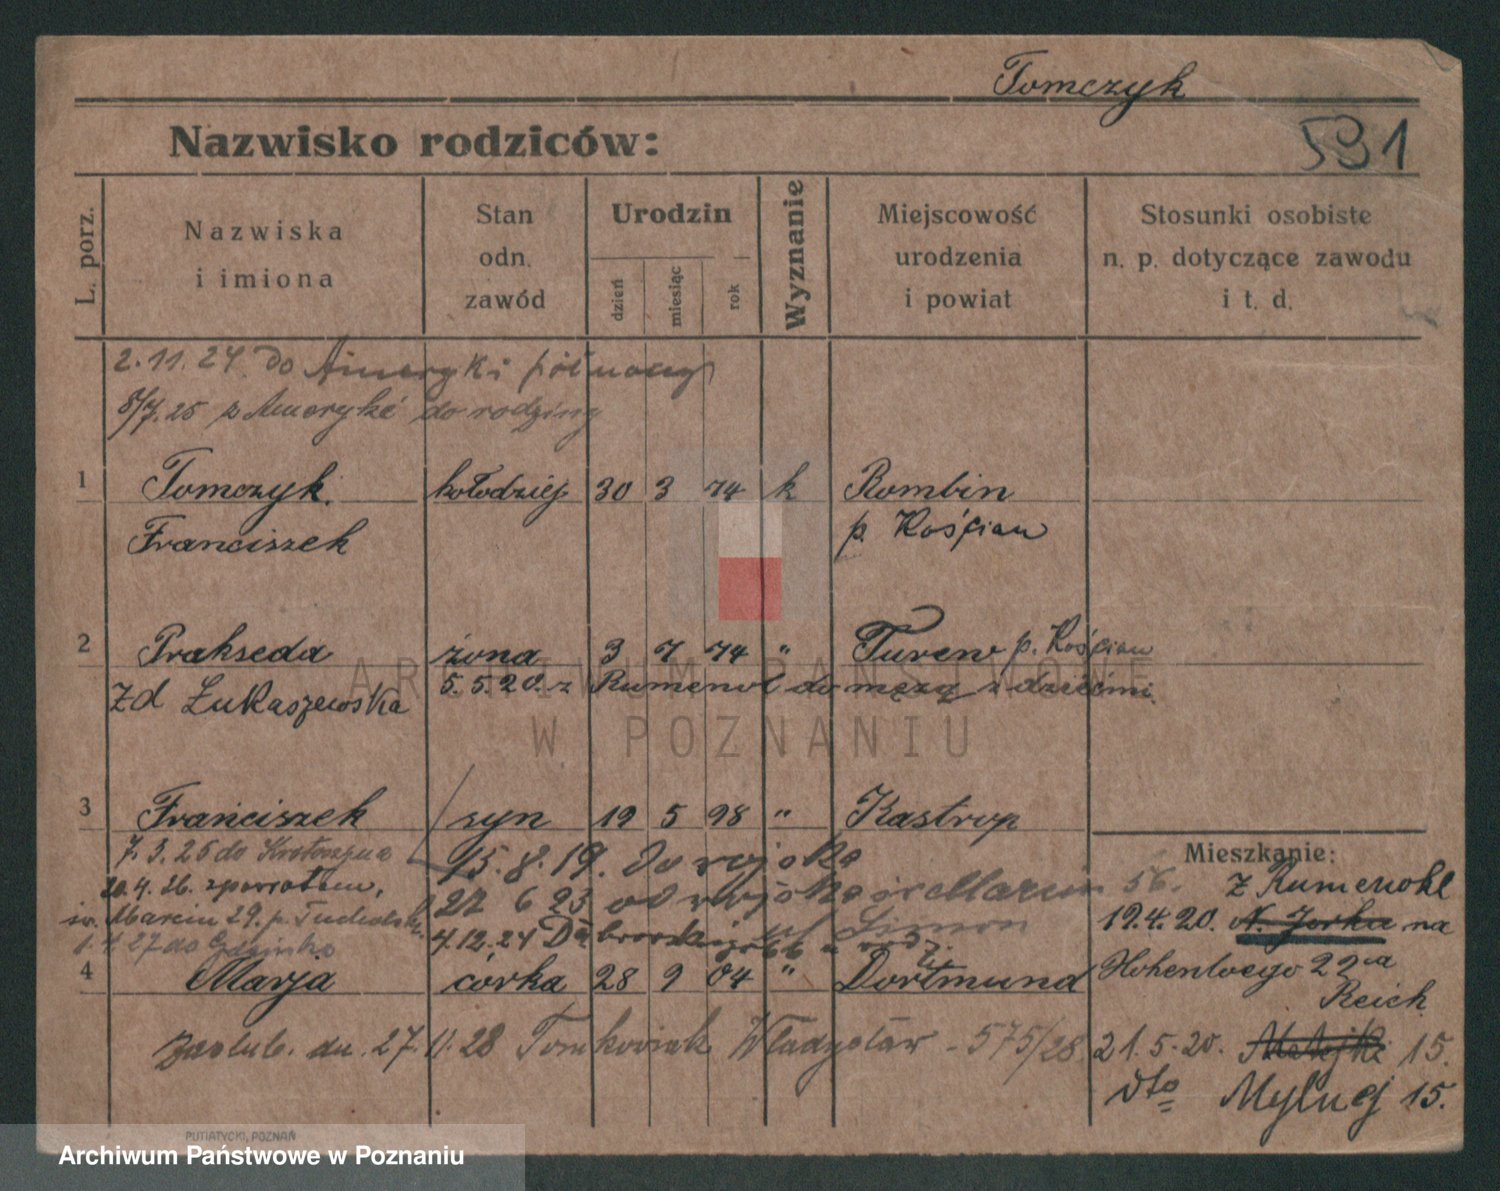 Tomczyk
Nazwisko rodziców:
531
L. porz.
Nazwiska i imiona
Stan odn. zawód
Urodzin
dzień
miesiąc
rok
Wyznanie
Miejscowość urodzenia i powiat
Stosunki osobiste n. p. dotyczące zawodu i t. d.
2.11.24. do Ameryki północnej
8/7.25 z Ameryki do rodziny
1 Tomczyk kołodziej 30 3 74 k Rombin
Franciszek p. Kościan
2 Prakseda żona 3 7 74 " Turew p. Kościan
zd Łukaszewska 5.5.20. z Rumenohl do męża z dziećmi
3 Franciszek syn 19 5 98 " Kastrop
7.3.26 do Krotoszyna 15.8.19. do wojska
20.4.26. zpowrotem, 27 6 23 od wojska św Marcin 56.
św. Marcin 29. p.
1.4.27 do 4.12.24 Dąbrowskiego
4 Marja córka 28 9 04 " Dortmund
zaślub. dn. 27.11.28 Tomkowiak Władysław - 575/28
Mieszkanie:
z Rumenohl
19.4.20. N. Jorka na
Hohenloego 22
Reich
21.5.20. Matejki 15.
dto Mylnej 15.
PUTIATYCKI, POZNAŃ
ARCHIWUM PAŃSTWOWE
W POZNANIU
Archiwum Państwowe w Poznaniu